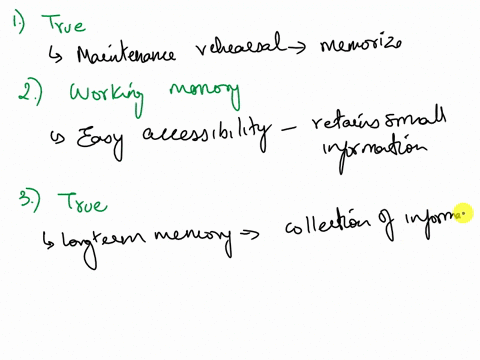 1.) True
↳ Maintenance rehearsal → memorize
2.) Working memory
↳ Easy accessibility - retains small
information
3.) True
↳ Longterm memory → collection of informa